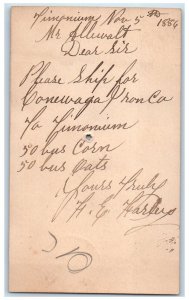 Timonium Nov 5 1886
Mr Alluvalt
Dear Sir
Please Ship for
Conewaga Iron Co
To Timonium
50 bus Corn
50 bus Oats
Yours Truly
H. E.